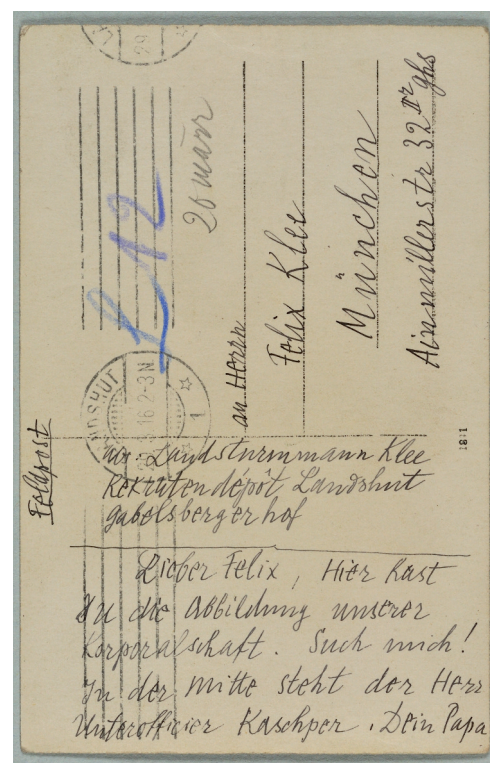 Feldpost
L 12
20 März
LANDSHUT
16.2-3N.
1
an Herrn
Felix Klee
München
Ainmillerstr 32 IIr ghs
1811
Abs. Landsturmmann Klee
Rekrutendépôt, Landshut
Gabelsbergerhof
Lieber Felix, Hier hast
Du die Abbildung unserer
Korporalschaft. Such mich!
In der Mitte steht der Herr
Unterofficier Kaschper. Dein Papa